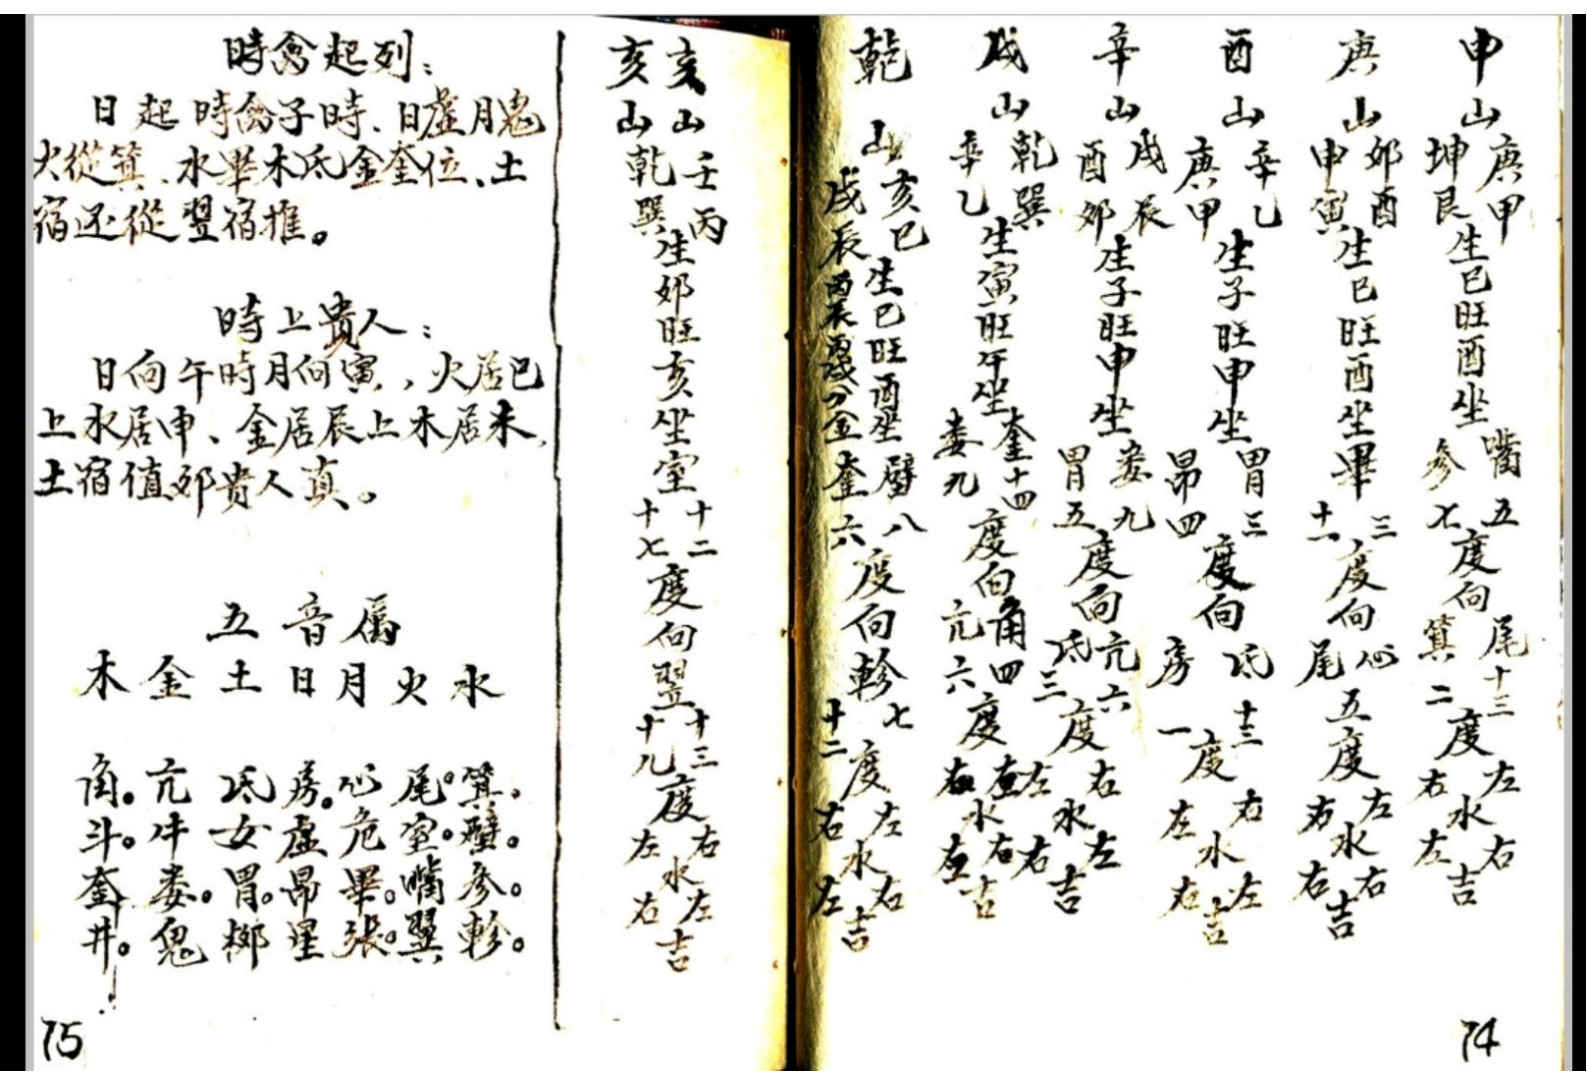 申山庚甲坤艮生巳旺酉坐嘴五参七度向尾十三箕二度左右水右左吉
庚山卯酉申寅生巳旺酉坐畢三十一度向心尾五度左右水右右吉
酉山辛乙庚甲生子旺申坐胃三昴四度向氐十三房一度右左水左右吉
辛山戌辰酉卯生子旺申坐娄九胃五度向亢六氐三度右左水左右吉
戌山乾巽辛乙生寅旺午坐奎十四娄九度向角四亢六度左右水右左吉
乾山亥巳戌辰生巳旺酉坐壁八奎六度向軫七十二度左右水右左吉
丙辰丙戌分金
74
亥山壬丙亥山乾巽生卯旺亥坐室十二十七度向翌十三十九度右左水左右吉
時禽起列：
日起時禽子時、日虛月鬼
火從箕、水畢木氐金奎位、土
宿还從翌宿推。
時上貴人：
日向午時月向寅，火居巳
上水居申、金居辰上木居未、
土宿值卯贵人真。
五音属
木金土日月火水
角。亢氐房。心尾。箕。
斗。牛女虛危室。壁。
奎娄。胃。昴畢。嘴参。
井。鬼柳星張。翼軫。
75